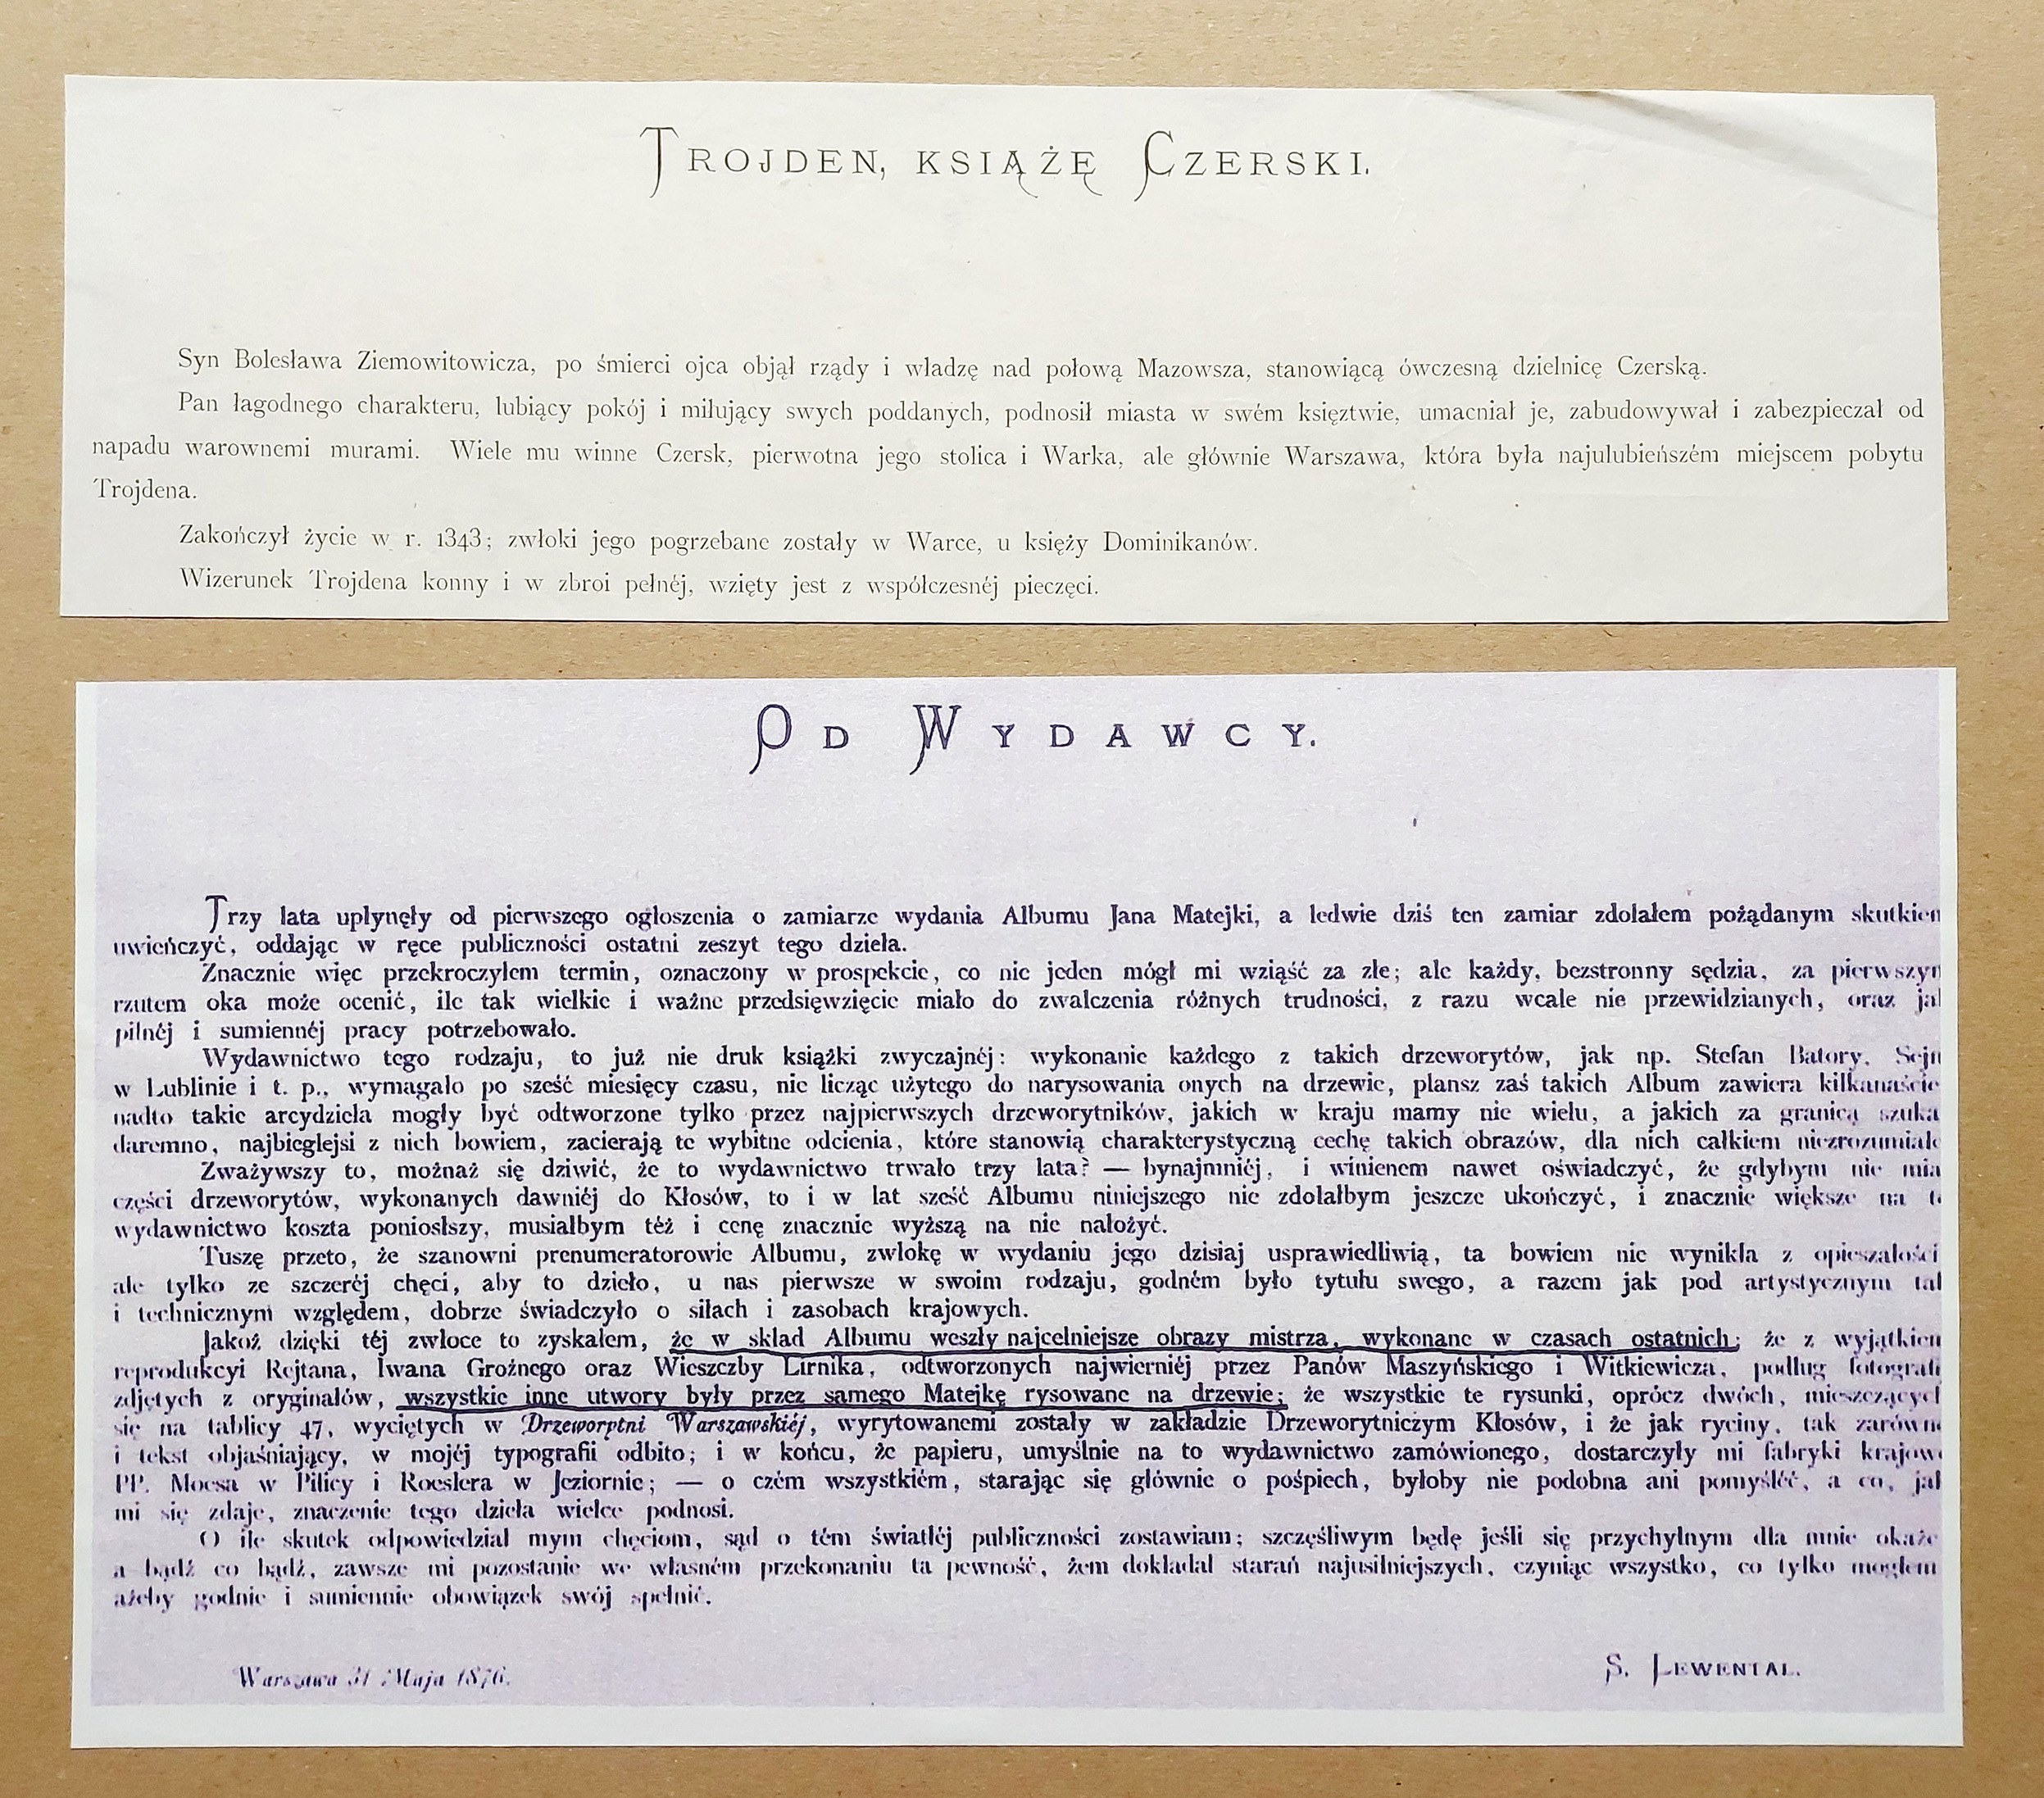 Trojden, książę Czerski.
Syn Bolesława Ziemowitowicza, po śmierci ojca objął rządy i władzę nad połową Mazowsza, stanowiącą ówczesną dzielnicę Czerską.
Pan łagodnego charakteru, lubiący pokój i miłujący swych poddanych, podnosił miasta w swém księztwie, umacniał je, zabudowywał i zabezpieczał od
napadu warownemi murami. Wiele mu winne Czersk, pierwotna jego stolica i Warka, ale głównie Warszawa, która była najulubieńszém miejscem pobytu
Trojdena.
Zakończył życie w r. 1343; zwłoki jego pogrzebane zostały w Warce, u księży Dominikanów.
Wizerunek Trojdena konny i w zbroi pełnéj, wzięty jest z współczesnéj pieczęci.
Od Wydawcy.
Trzy lata upłynęły od pierwszego ogłoszenia o zamiarze wydania Albumu Jana Matejki, a ledwie dziś ten zamiar zdołałem pożądanym skutkien
uwieńczyć, oddając w ręce publiczności ostatni zeszyt tego dzieła.
Znacznie więc przekroczyłem termin, oznaczony w prospekcie, co nie jeden mógł mi wziąść za złe; ale każdy, bezstronny sędzia, za pierwszyn
rzutem oka może ocenić, ile tak wielkie i ważne przedsięwzięcie miało do zwalczenia różnych trudności, z razu wcale nie przewidzianych, oraz jal
pilnéj i sumiennéj pracy potrzebowało.
Wydawnictwo tego rodzaju, to już nie druk książki zwyczajnéj: wykonanie każdego z takich drzeworytów, jak np. Stefan Batory, Sejn
w Lublinie i t. p., wymagało po sześć miesięcy czasu, nie licząc użytego do narysowania onych na drzewie, plansz zaś takich Album zawiera kilkanaście
nadto takie arcydzieła mogły być odtworzone tylko przez najpierwszych drzeworytników, jakich w kraju mamy nie wielu, a jakich za granicą szuka
daremno, najbieglejsi z nich bowiem, zacierają te wybitne odcienia, które stanowią charakterystyczną cechę takich obrazów, dla nich całkiem niezrozumiałe
Zważywszy to, możnaż się dziwić, że to wydawnictwo trwało trzy lata? — bynajmniéj, i winienem nawet oświadczyć, że gdybym nie mia
części drzeworytów, wykonanych dawniéj do Kłosów, to i w lat sześć Albumu niniejszego nie zdołałbym jeszcze ukończyć, i znacznie większe na t
wydawnictwo koszta poniosłszy, musiałbym téż i cenę znacznie wyższą na nie nałożyć.
Tuszę przeto, że szanowni prenumeratorowie Albumu, zwłokę w wydaniu jego dzisiaj usprawiedliwią, ta bowiem nie wynikła z opieszałości
ale tylko ze szczeréj chęci, aby to dzieło, u nas pierwsze w swoim rodzaju, godném było tytułu swego, a razem jak pod artystycznym tal
i technicznym względem, dobrze świadczyło o siłach i zasobach krajowych.
Jakoż dzięki téj zwłoce to zyskałem, że w skład Albumu weszły najcelniejsze obrazy mistrza, wykonane w czasach ostatnich; że z wyjątkien
reprodukcyi Rejtana, Iwana Groźnego oraz Wieszczby Lirnika, odtworzonych najwierniéj przez Panów Maszyńskiego i Witkiewicza, podług fotografi
zdjętych z oryginałów, wszystkie inne utwory były przez samego Matejkę rysowane na drzewie; że wszystkie te rysunki, oprócz dwóch, mieszczącycl
się na tablicy 47, wyciętych w Drzeworytni Warszawskiéj, wyrytowanemi zostały w zakładzie Drzeworytniczym Kłosów, i że jak ryciny, tak zarówn
i tekst objaśniający, w mojéj typografii odbito; i w końcu, że papieru, umyślnie na to wydawnictwo zamówionego, dostarczyły mi fabryki krajow
PP. Moesa w Pilicy i Roeslera w Jeziornie; — o czém wszystkiém, starając się głównie o pośpiech, byłoby nie podobna ani pomyśléć, a co, jal
mi się zdaje, znaczenie tego dzieła wielce podnosi.
O ile skutek odpowiedział mym chęciom, sąd o tém światłéj publiczności zostawiam; szczęśliwym będę jeśli się przychylnym dla mnie okaże
a bądź co bądź, zawsze mi pozostanie we własném przekonaniu ta pewność, żem dokładał starań najusilniejszych, czyniąc wszystko, co tylko mogłem
ażeby godnie i sumiennie obowiązek swój spełnić.
Warszawa 31 Maja 1876.
S. Lewental.